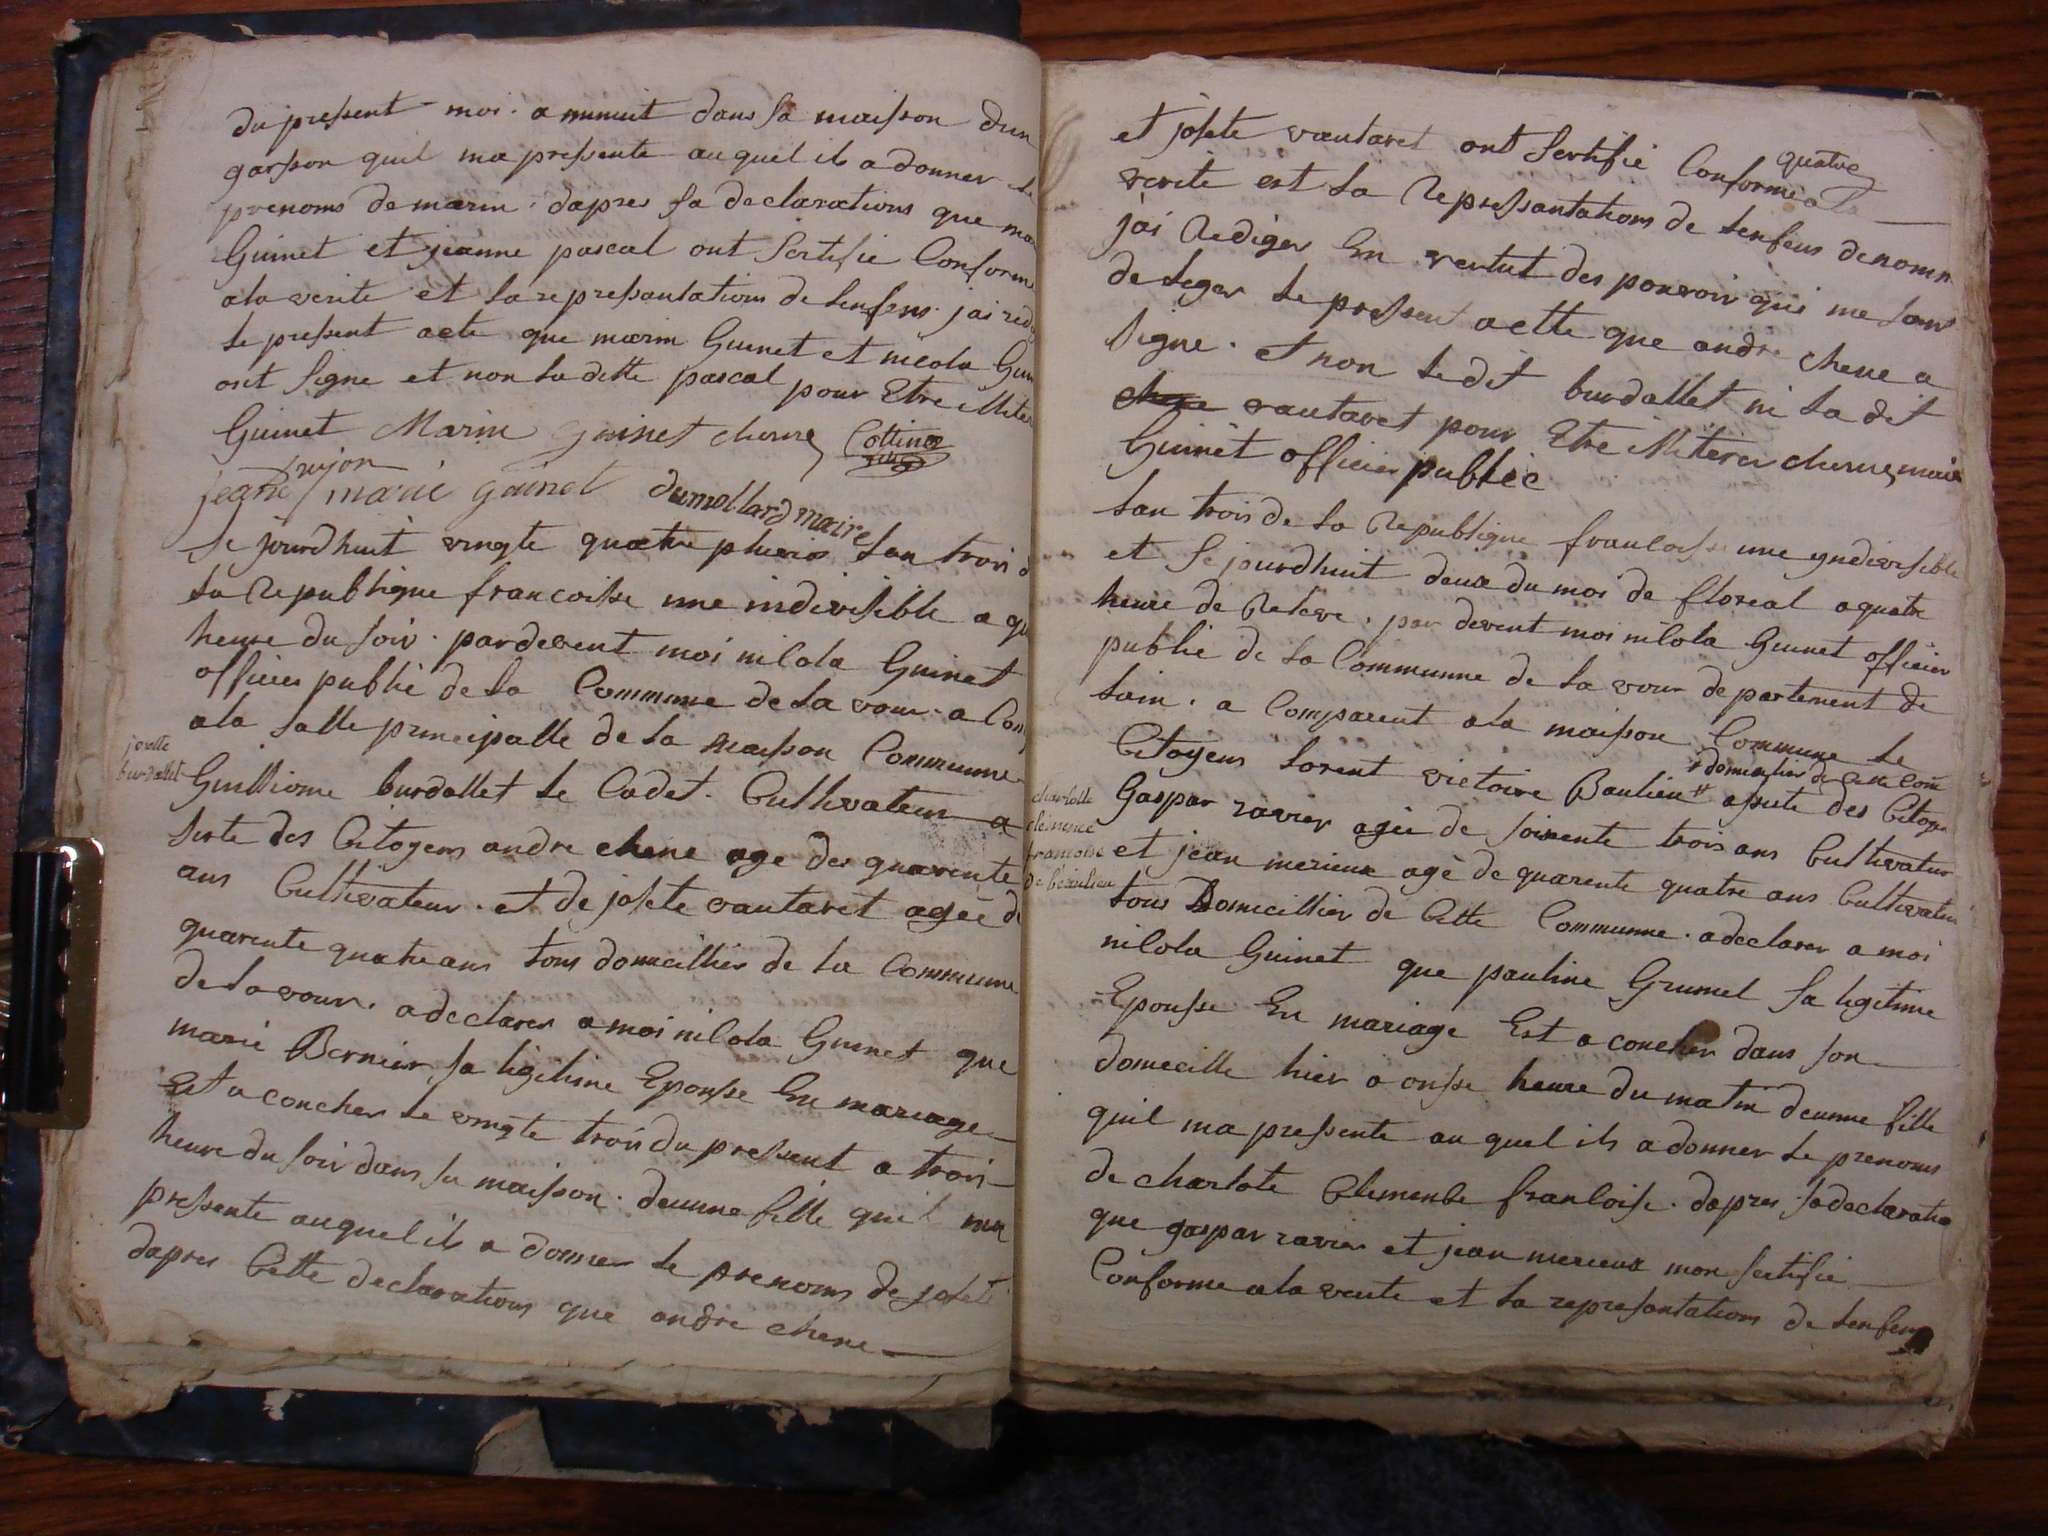 du pressent moi. a minuit dans sa maisson dun
garsson quil ma pressente auquel ils a donner le
prenoms de marin. dapres sa declarations que
Guinet et jeanne pascal ont sertifie Conforme
ala verite et la repressantations de lenfens. jai
le pressent acte que marin Guinet et nicola
ont signe et non la ditte pascal pour Etre
Guinet Marin guinet cherne Cottinos
jeane marie guinet dumollard maire
Se jourdhuit vingte quatre pluvios lan trois
la Republique francoisse une indivisible a
heure du soir. pardevent moi nicola Guinet
officier public de la Commune de la vour. a
ala salle principalle de la maisson Communne
josette
burdallet
Guilliome burdallet le Cadet. Cultivateur a
siste des Citoyens andre chene age de quarente
ans Cultivateur. et de josete vautaret agée de
quarente quatre ans tous domicillier de la Commune
de lavour. a declarer a moi nicola Guinet que
marie Bernier sa ligitime Epousse En mariage
Est a coucher le vingte trois du pressent a trois
heure du soir dans sa maisson. deunne fille quil ma
pressente auquel ils a donner le prenoms de josete
dapres Cette declarations que andre chene
quatre
et josete vautaret ont sertifié Conforme ala
verite est la Repressantations de lenfens denomm
jai Rediger En vertut des pouvoir qui me sont
deleger le pressent actte que andre chene a
signe. et non ledit burdallet ni la dit
chene vautaret pour Etre iliterer cherne maire
Guinet officier public
lan trois de la Republique francoisse une yndivisible
et se jourdhuit deux du moi de floreal a quatre
heure de Releve. par devent moi nicola Guinet officier
public de la Communne de la vour departement de
lain. a Comparent ala maisson Commune le
domicilier de cette com
Citoyens lorent victoire Baulieu assiste des Citoyen
charlotte
clémence
francoise
de beaulieu
Gaspar ravier agée de soixente trois ans Cultivateur
et jean merieux agé de quarente quatre ans Cultivateur
tous Domicillier de Cette Communne. a declarer a moi
nicola Guinet que pauline Grumel sa legitime
Epousse En mariage Est a coucher dans son
domicille hier a onsse heure du matin deunne fille
quil ma pressente au quel ils a donner le prenoms
de charlote Clemence francoise. dapres sa declaration
que gaspar ravier et jean merieux mon sertifie
Conforme ala verite et la represantations de lenfens